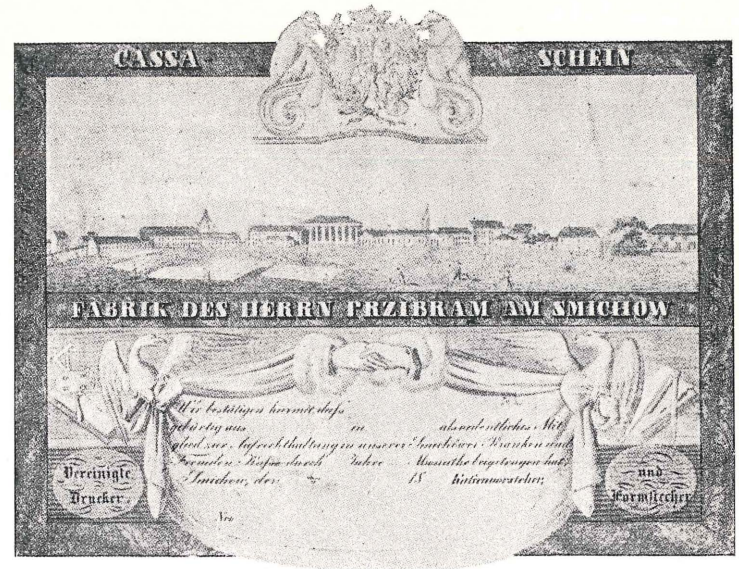 CASSA SCHEIN
FABRIK DES HERRN PRZIBRAM AM SMICHOW
Wir bestätigen hiermit dass
gebürtig aus in als ordentliches Mit
glied zur Aufrechthaltung in unserer Smichower Kranken und
Fremden Kassa durch Jahre Monathe beigetragen hat,
Smichow, den 18
Vereinigte
Drucker
und
Formstecher
Nro